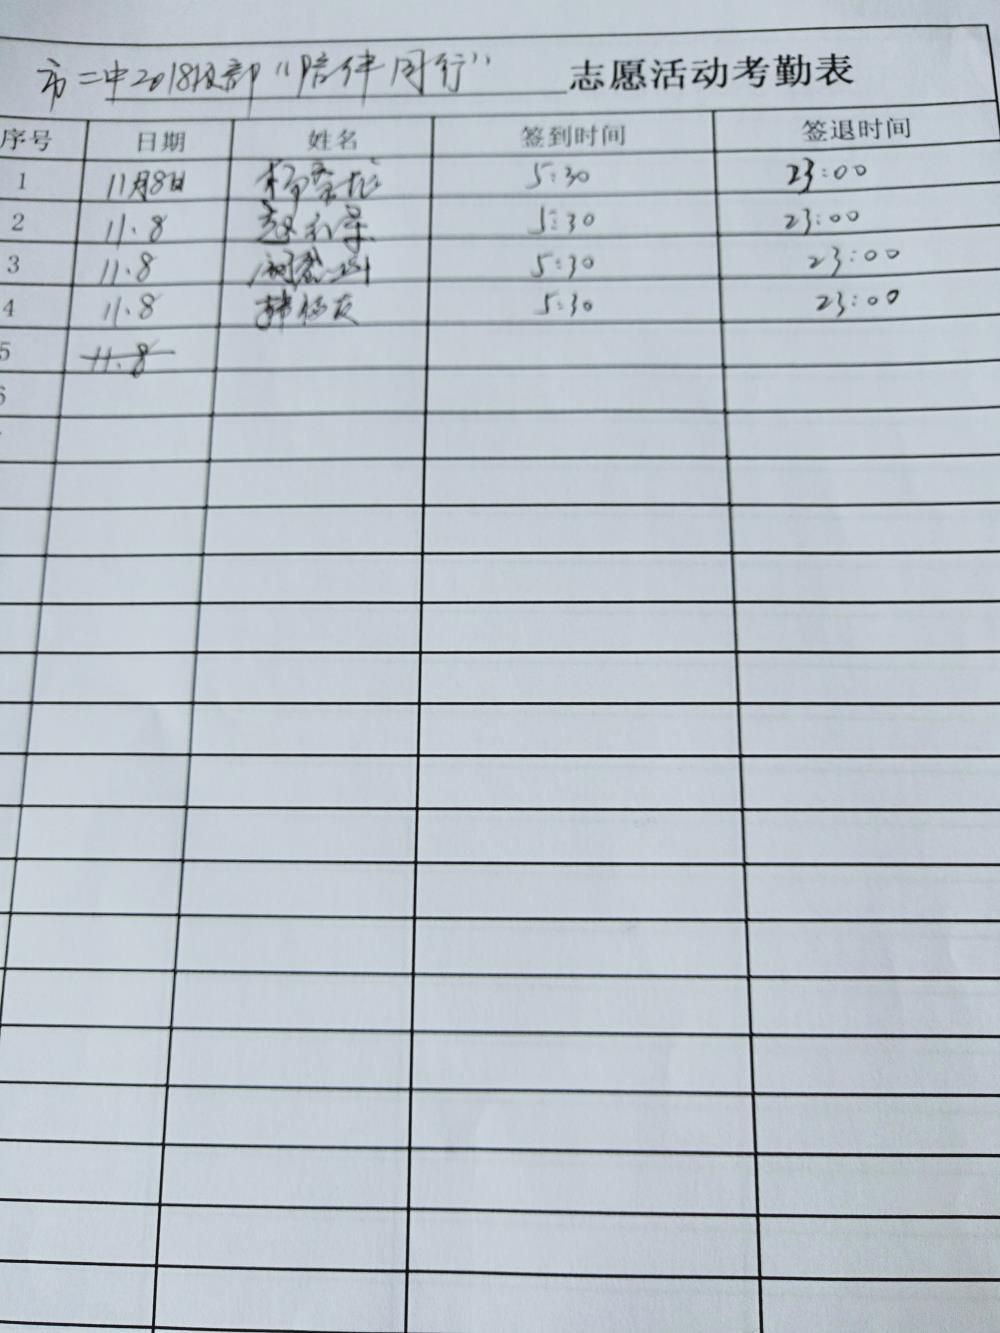 市二中2018级部“陪伴同行” 志愿活动考勤表
序号 日期 姓名 签到时间 签退时间
1 11月8日 5:30 23:00
2 11.8 5:30 23:00
3 11.8 5:30 23:00
4 11.8 韩 5:30 23:00
5 11.8
6